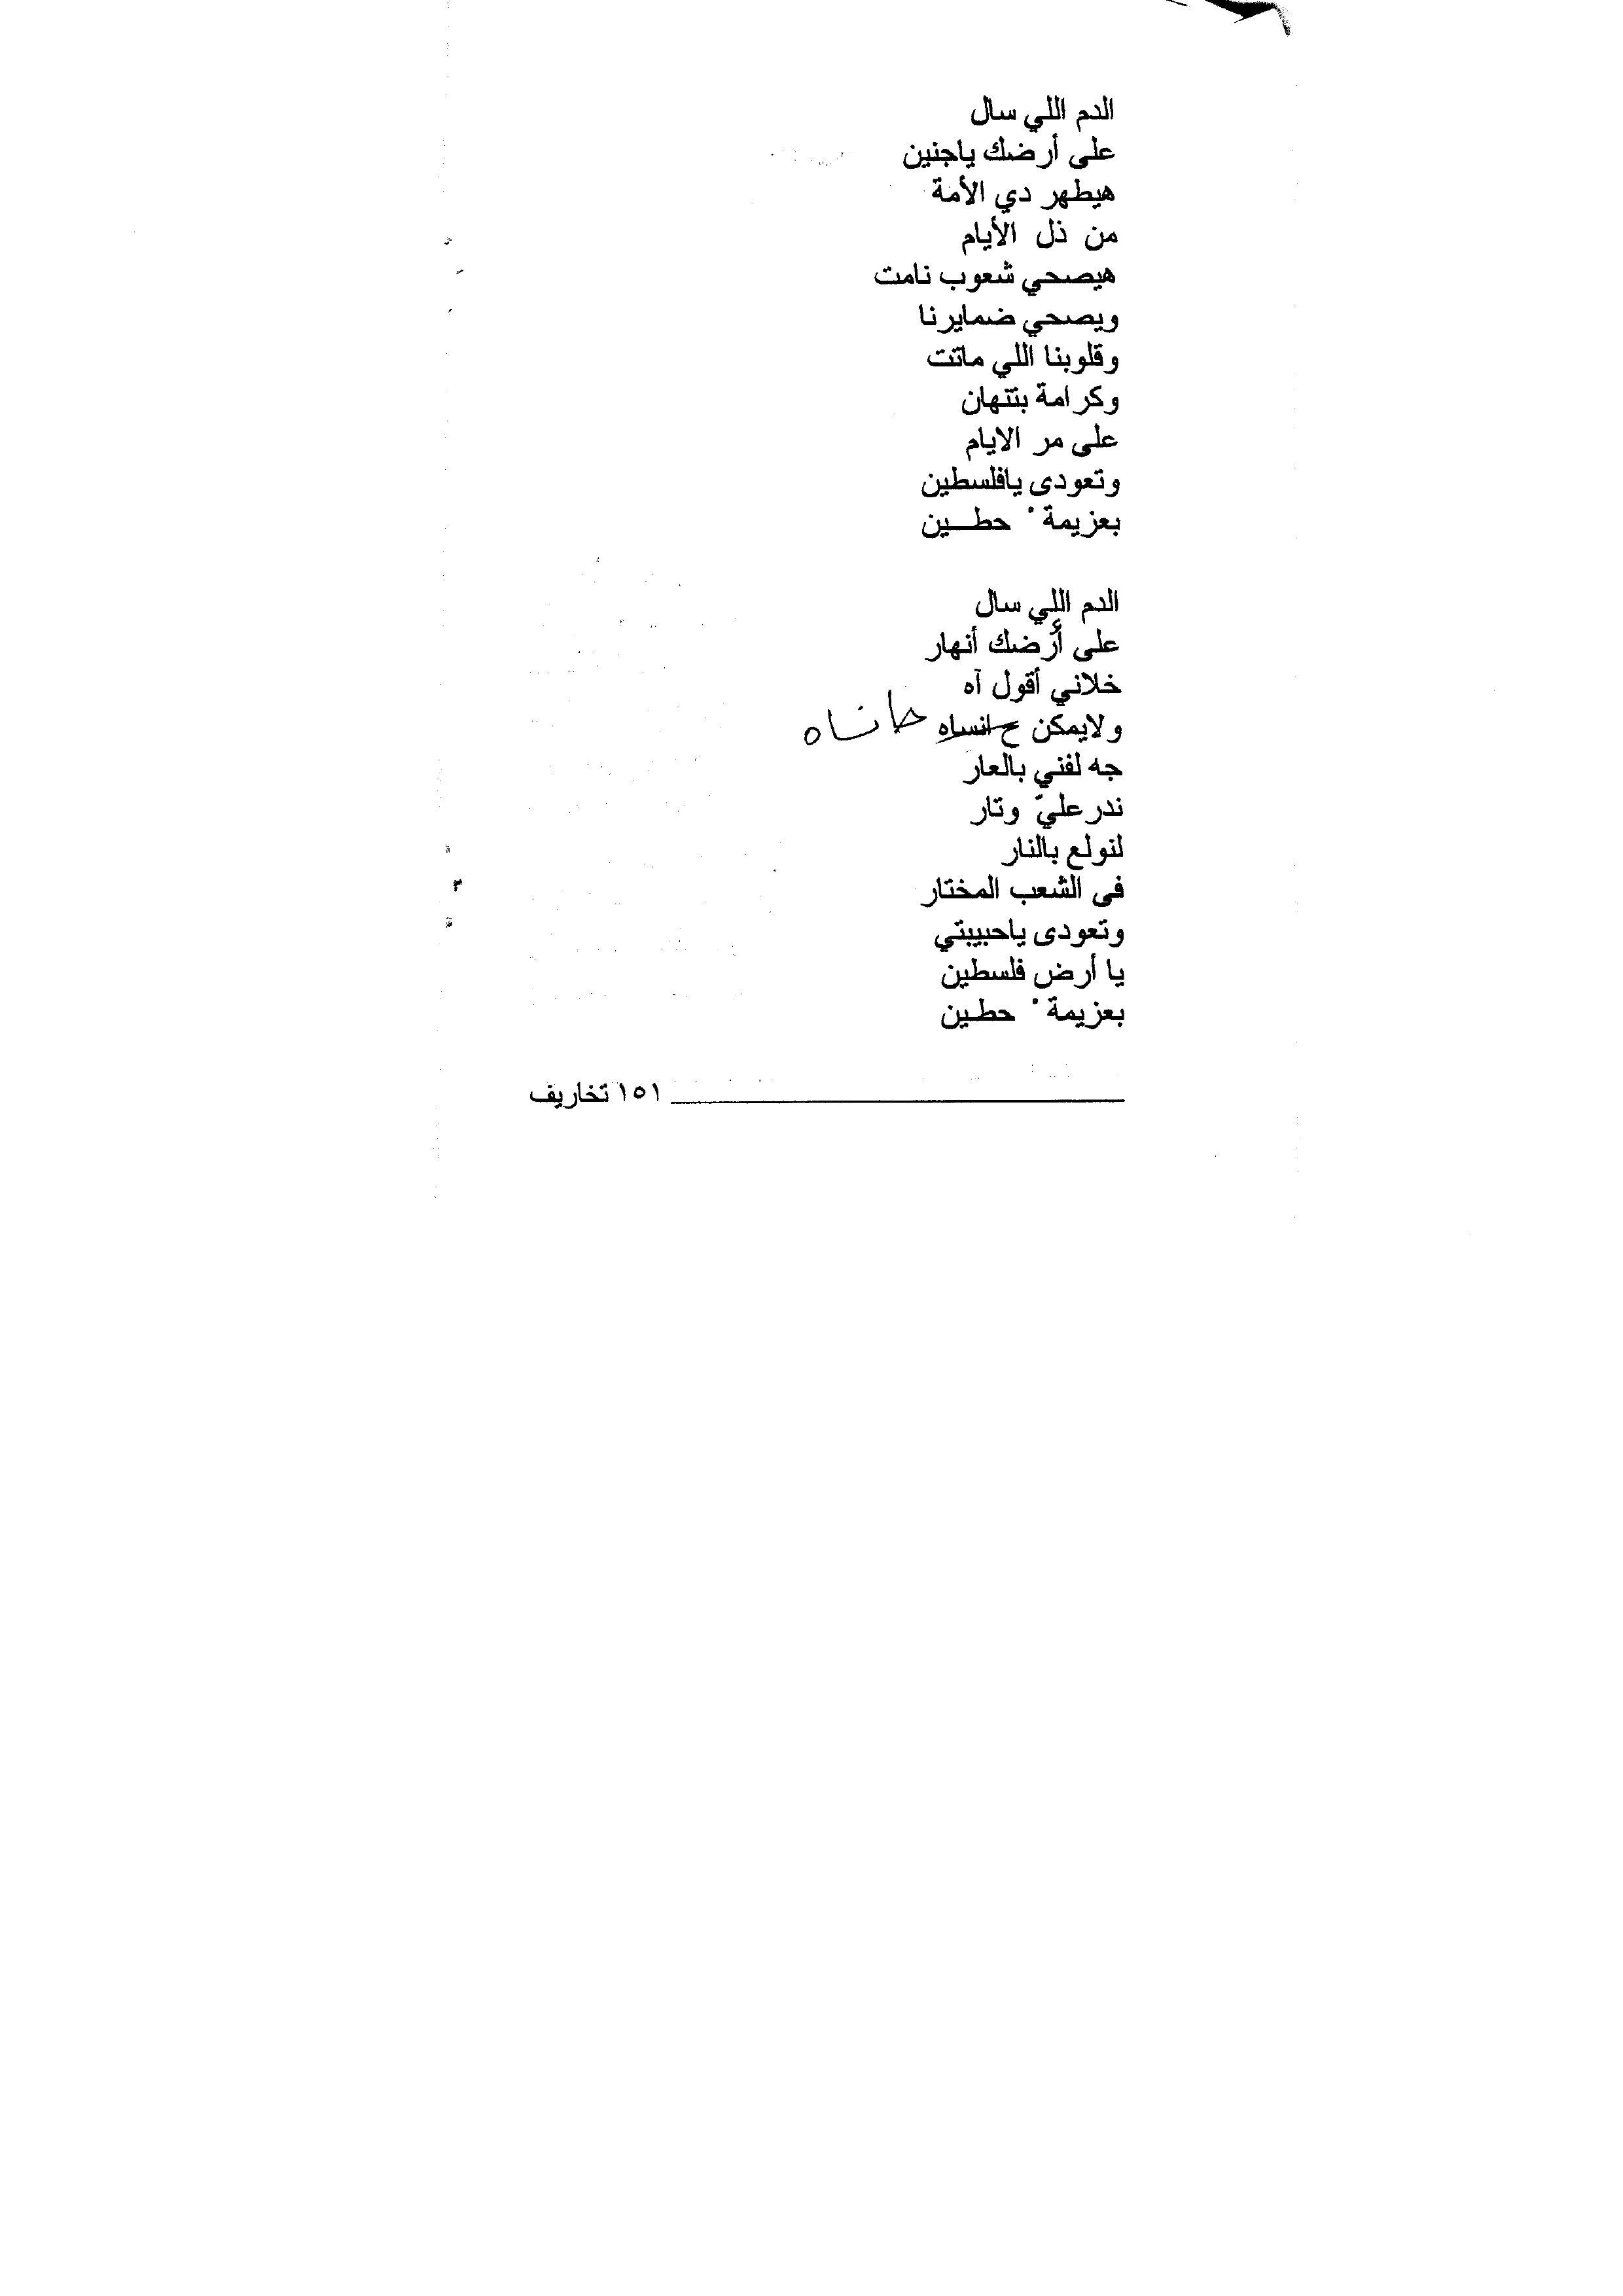 الدم اللي سال
على أرضك ياجنين
هيطهر دي الأمة
من ذل الأيام
هيصحي شعوب نامت
ويصحي ضمايرنا
وقلوبنا اللي ماتت
وكرامة بتتهان
على مر الايام
وتعودى يافلسطين
بعزيمة ْ حطـــين
الدم اللي سال
على أرضك أنهار
خلاني أقول آه
ولايمكن ح انساه حانساه
جه لفني بالعار
ندر عليّ وتار
لنولع بالنار
فى الشعب المختار
وتعودى ياحبيبتي
يا أرض فلسطين
بعزيمة ْ حطـين
١٥١ تخاريف